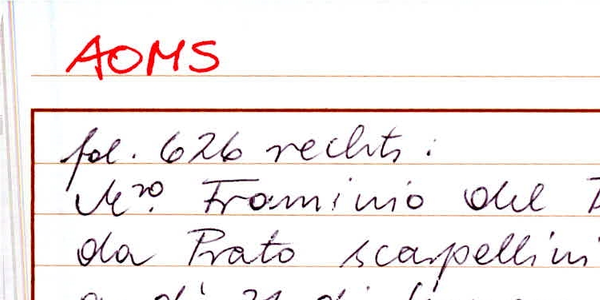 AOMS
fol. 626 rechts:
M.ro Framinio del
da Prato scarpellini
a dì 21 di